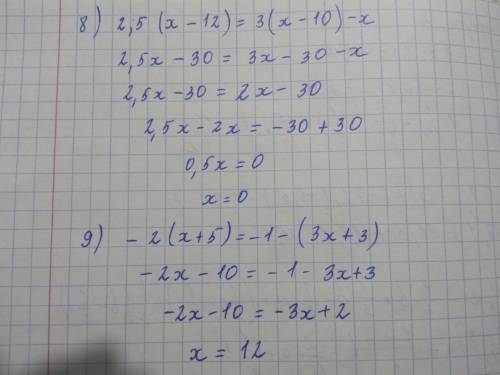 8) 2,5 (x - 12) = 3(x - 10) - x
2,5x - 30 = 3x - 30 - x
2,5x - 30 = 2x - 30
2,5x - 2x = -30 + 30
0,5x = 0
x = 0
9) - 2(x+5) = -1 - (3x+3)
-2x - 10 = -1 - 3x+3
-2x - 10 = -3x + 2
x = 12